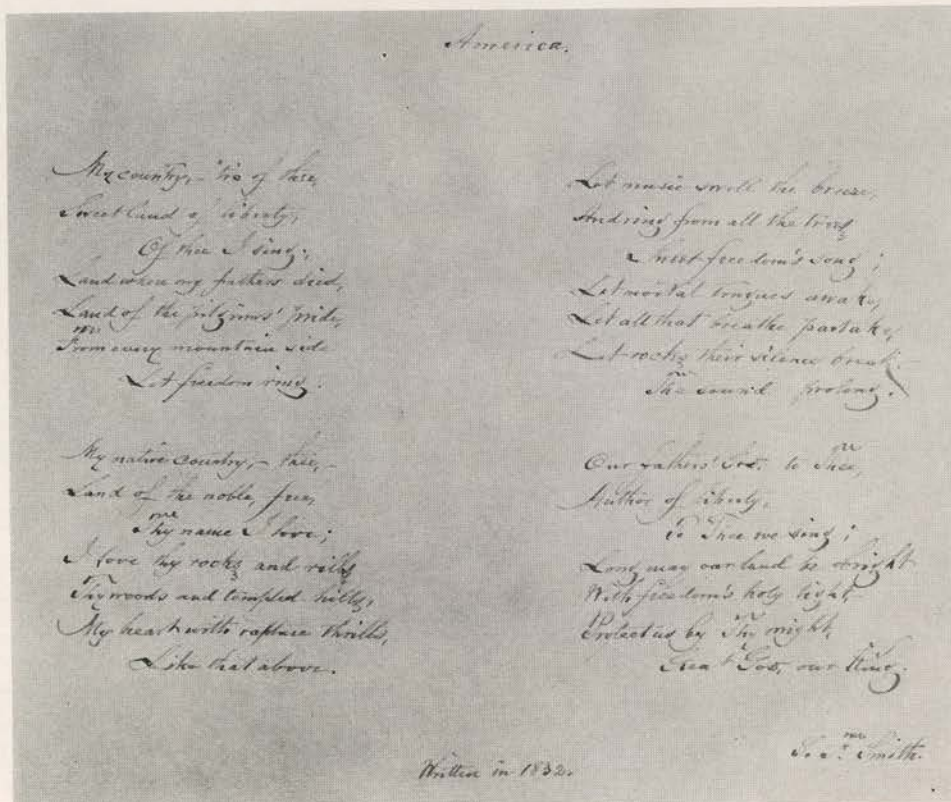 America.
My country, - 'tis of thee,
Sweet land of liberty,
Of thee I sing;
Land where my fathers died,
Land of the pilgrims' pride,
From every mountain side
Let freedom ring.
My native country, - thee, -
Land of the noble, free,
Thy name I love;
I love thy rocks and rills,
Thy woods and templed hills,
My heart with rapture thrills,
Like that above.
Let music swell the breeze,
And ring from all the trees
Sweet freedom's song;
Let mortal tongues awake,
Let all that breathe partake,
Let rocks their silence break. -
The sound prolong.
Our fathers' God, to Thee,
Author of liberty,
To Thee we sing;
Long may our land be bright
With freedom's holy light, -
Protect us by Thy might,
Great God, our King.
Smith.
Written in 1832.